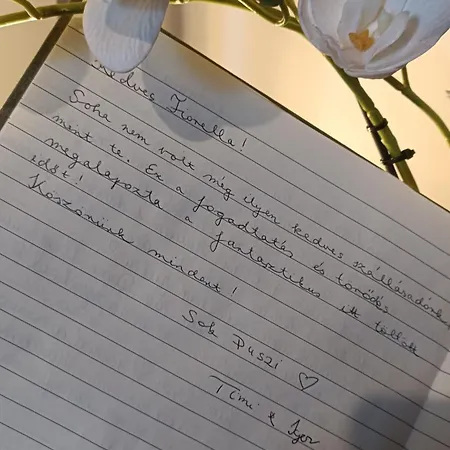 Kedves Fiorella!
Soha nem volt még ilyen kedves szállásadónk,
mint te. Ez a fogadtatás és törődés
megalapozta a fantasztikus itt töltött
időt!
Köszönünk mindent!
Sok Puszi ♡
Timi & Igor